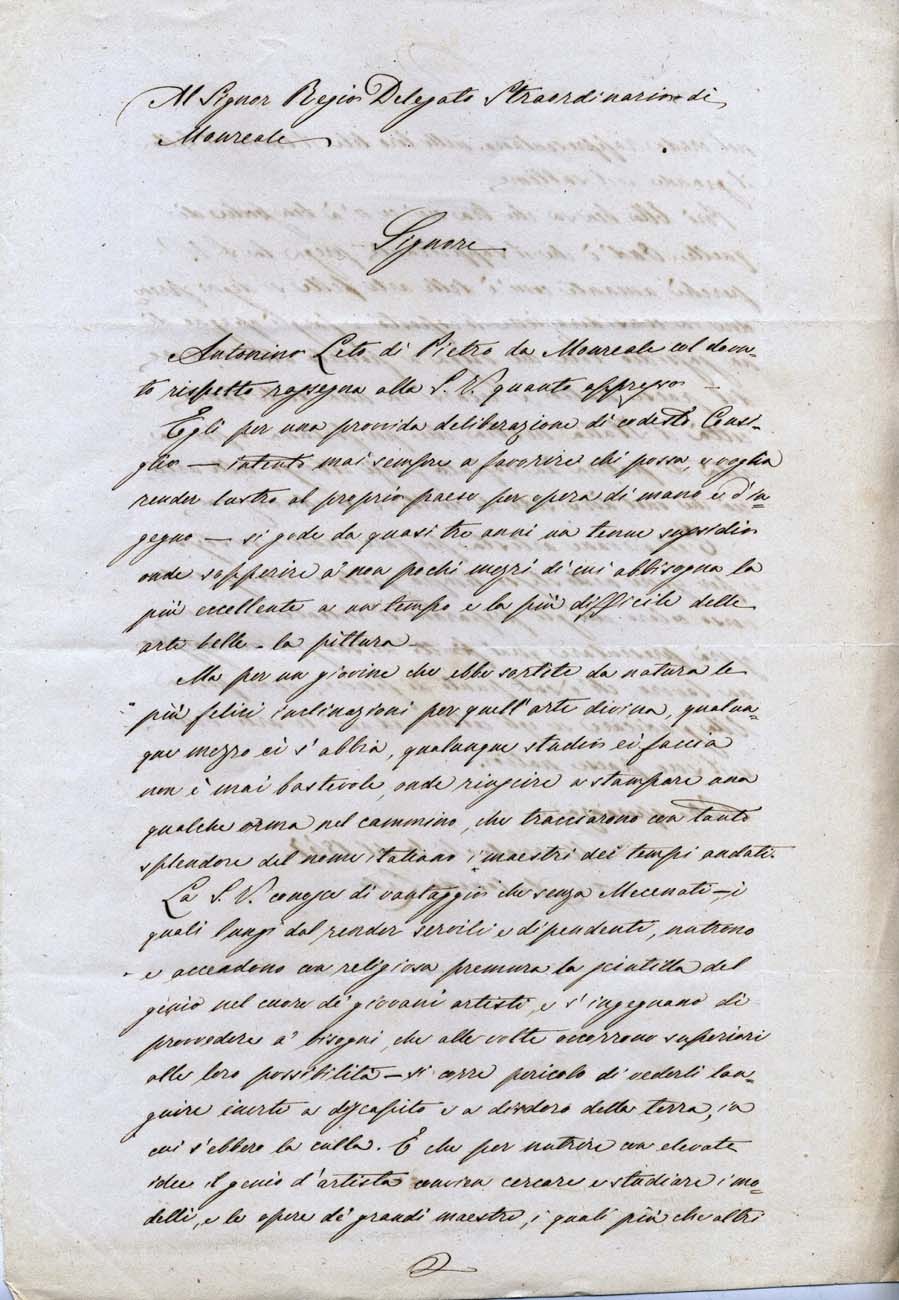 Al Signor Regio Delegato Straordinario di
Monreale
Signore
Antonino Leto di Pietro da Monreale col dovu-
to rispetto rassegna alla S. V. quanto appresso –
Egli per una provvida deliberazione di codesto Consi-
glio – intento mai sempre a favorire chi possa, e voglia
render lustro al proprio paese per opera di mano e d'in=
gegno – si gode da quasi tre anni un tenue sussidio
onde sopperire a' non pochi mezzi di cui abbisogna la
più eccellente a un tempo e la più difficile delle
arte belle – la pittura –
Ma per un giovine che ebbe sortite da natura le
più felici inclinazioni per quell'arte divina, qualun=
que mezzo ei s'abbia, qualunque studio ei faccia
non è mai bastevole, onde riuscire a stampare una
qualche orma nel cammino, che tracciarono con tanto
splendore del nome italiano i maestri dei tempi andati.
La S. V. conosce di vantaggio che senza Mecenati – i
quali lungi dal render servili e dipendente, nutrono
e accendono con religiosa premura la scintilla del
genio nel cuore de' giovani artisti, e s'ingegnano di
provvedere a' bisogni, che alle volte occorrono superiori
alle loro possibilità – si corre pericolo di vederli lan=
guire inerte a discapito e a disdoro della terra, in
cui s'ebbero la culla. E che per nutrire con elevate
idee il genio d'artista convien cercare e studiare i mo=
delli, e le opere de' grandi maestri, i quali più che altri